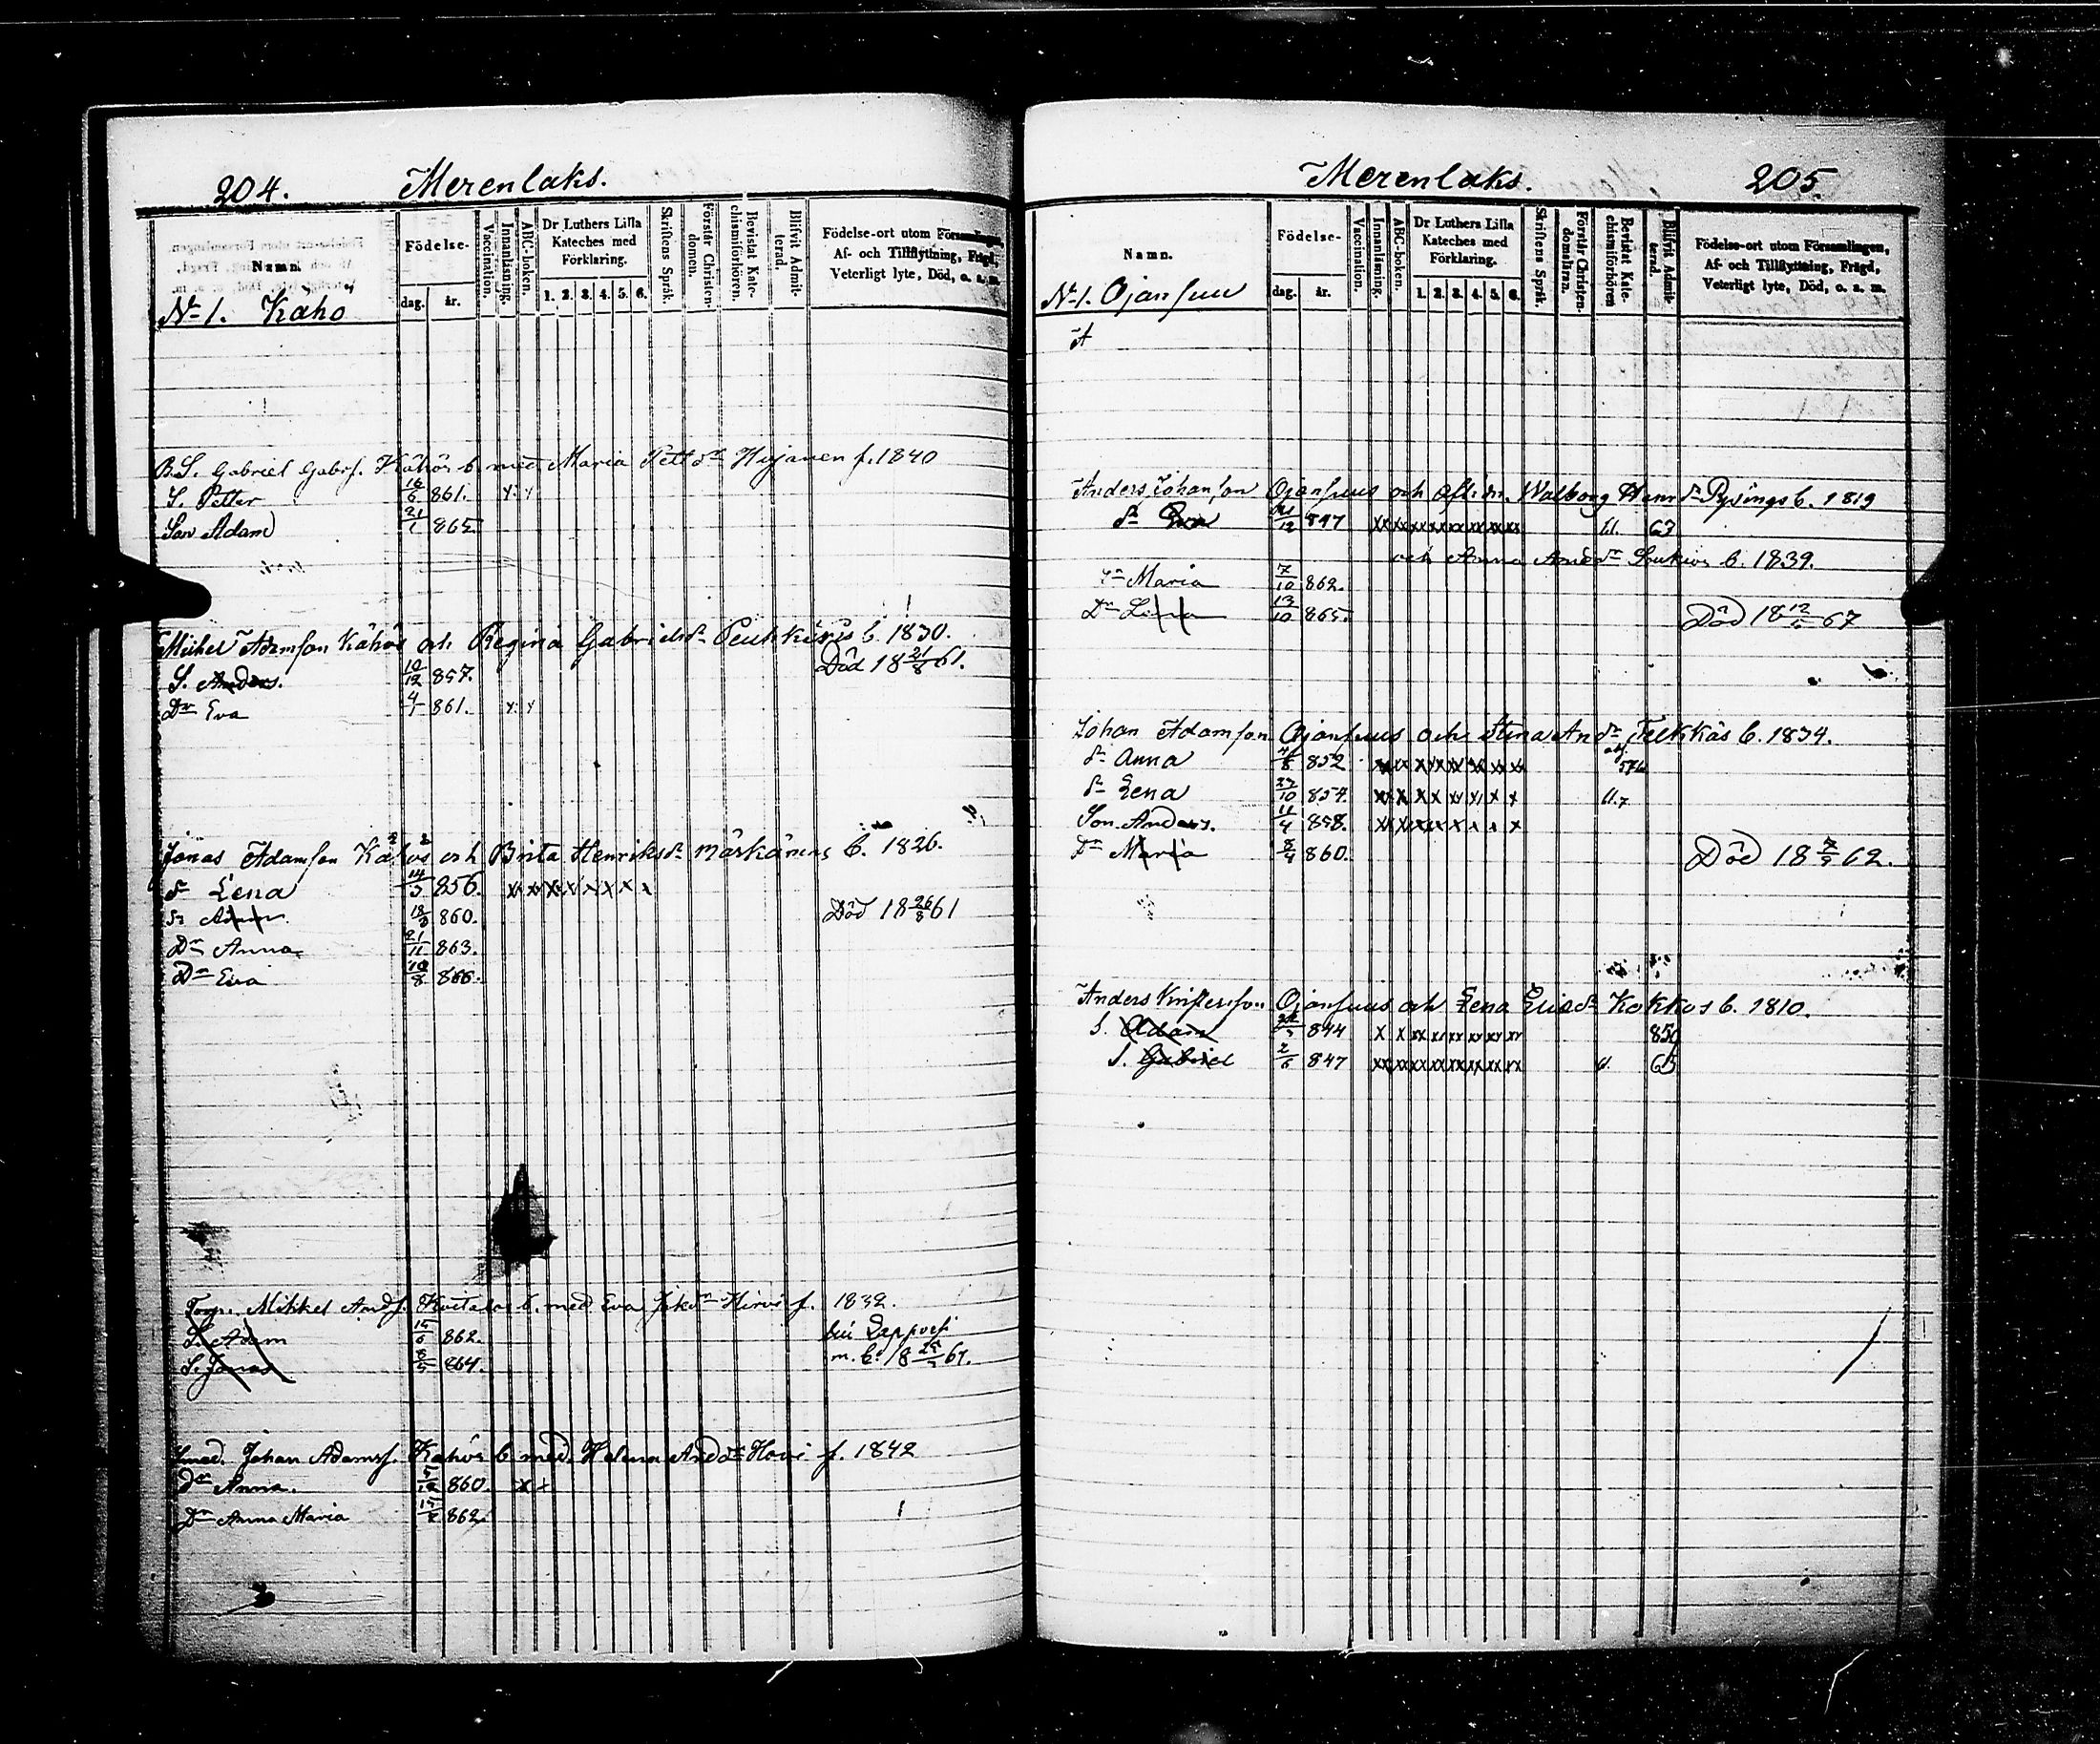 204. Merenlaks.
Namn.
Födelse-
dag. år.
Vaccination.
Innanläsning.
ABC-boken.
Dr Luthers Lilla Kateches med Förklaring.
1. 2. 3. 4. 5. 6.
Skriftens Språk.
Förstår Christendomen.
Bevistat Katechismiförhören.
Blifvit Admitterad.
Födelse-ort utom Församlingen,
Af- och Tillflyttning, Frägd,
Veterligt lyte, Död, o. s. m.
No 1. Kähö
B.S. Gabriel Gabrs. Kähös b. med Maria Pettdr Hujanen f. 1840
S. Petter 16/6 861. x x
Son Adam 21/1 865
Mickel Adamson Kähös och Regina Gabrielsdr Peuhkuris b. 1830.
S. Anders. 10/12 857. Död 18 21/8 61.
Dr Eva 4/1 861. x x
Jonas Adamson Kähös och Brita Henriksdr b. 1826.
dr Lena 14/3 856. xx xx xx xx x x x x
860. Död 18 26/8 61
Dr Anna 21/11 863.
Dr Eva 10/8 866.
Torp. Mikkel Ands. b. med Eva Hirvi f. 1832.
S. Adam 15/6 862.
S. Jonas 864.
Smed. Johan Adamsf. Kähös b. med Helena Anddr Hovi f. 1842
Dr Anna. 860. x x
Dr Anna Maria 862.
Merenlaks. 205
Namn.
Födelse-
dag. år.
Vaccination.
Innanläsning.
ABC-boken.
Dr Luthers Lilla Kateches med Förklaring.
1. 2. 3. 4. 5. 6.
Skriftens Språk.
Förstår Christendomslära.
Bevistat Katechismiförhören
Blifvit Admitterad.
Födelse-ort utom Församlingen,
Af- och Tillflyttning, Frägd,
Veterligt lyte, Död, o. s. m.
No 1. Ojansuu
A
Anders Johanson Ojansuus och Walborg Henrdr Pysings b. 1819
dr 847 xx xx xx xx xx xx xx xx 63
och Anna Anddr b. 1839.
Dr Maria 7/10 862.
Dr 13/10 865. Död 18 67
Johan Adamson Ojansuus och Stina Anddr Telkkäs b. 1834.
dr Anna 852 xx xx x xx xx xx xx xx
dr Lena 27/10 854. xx x x x xx xx x x
Son Anders. 11/4 858. xx xx xx xx x x x x
Dr Maria 860. Död 18 62.
Anders Ojansuus och Lena Ericdr Kokkos b. 1810.
S. Adam 844 x x xx xx xx xx xx xx 850
S. Gabriel 2/6 847 xx xx xx xx xx xx xx xx 65